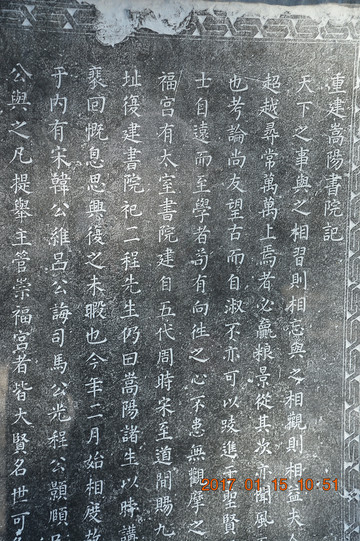 重建嵩陽書院記
天下之事與之相習則相忘與之相觀則相益夫人
超越尋常萬萬上焉者必贏粮景從其次亦聞風
也考論尚友望古而自淑不亦可以踐進于聖賢
士自遠而至學者苟有向往之心不患無觀摩之
福宮有太室書院建自五代周時宋至道間賜九
址復建書院祀二程先生仍曰嵩陽諸生以時講
裵回慨息思興復之未暇也今年二月始相度故
于内有宋韓公維呂公誨司馬公光程公顥頤
公與之凡提舉主管崇福宮者皆大賢名世可
2017.01.15 10:51